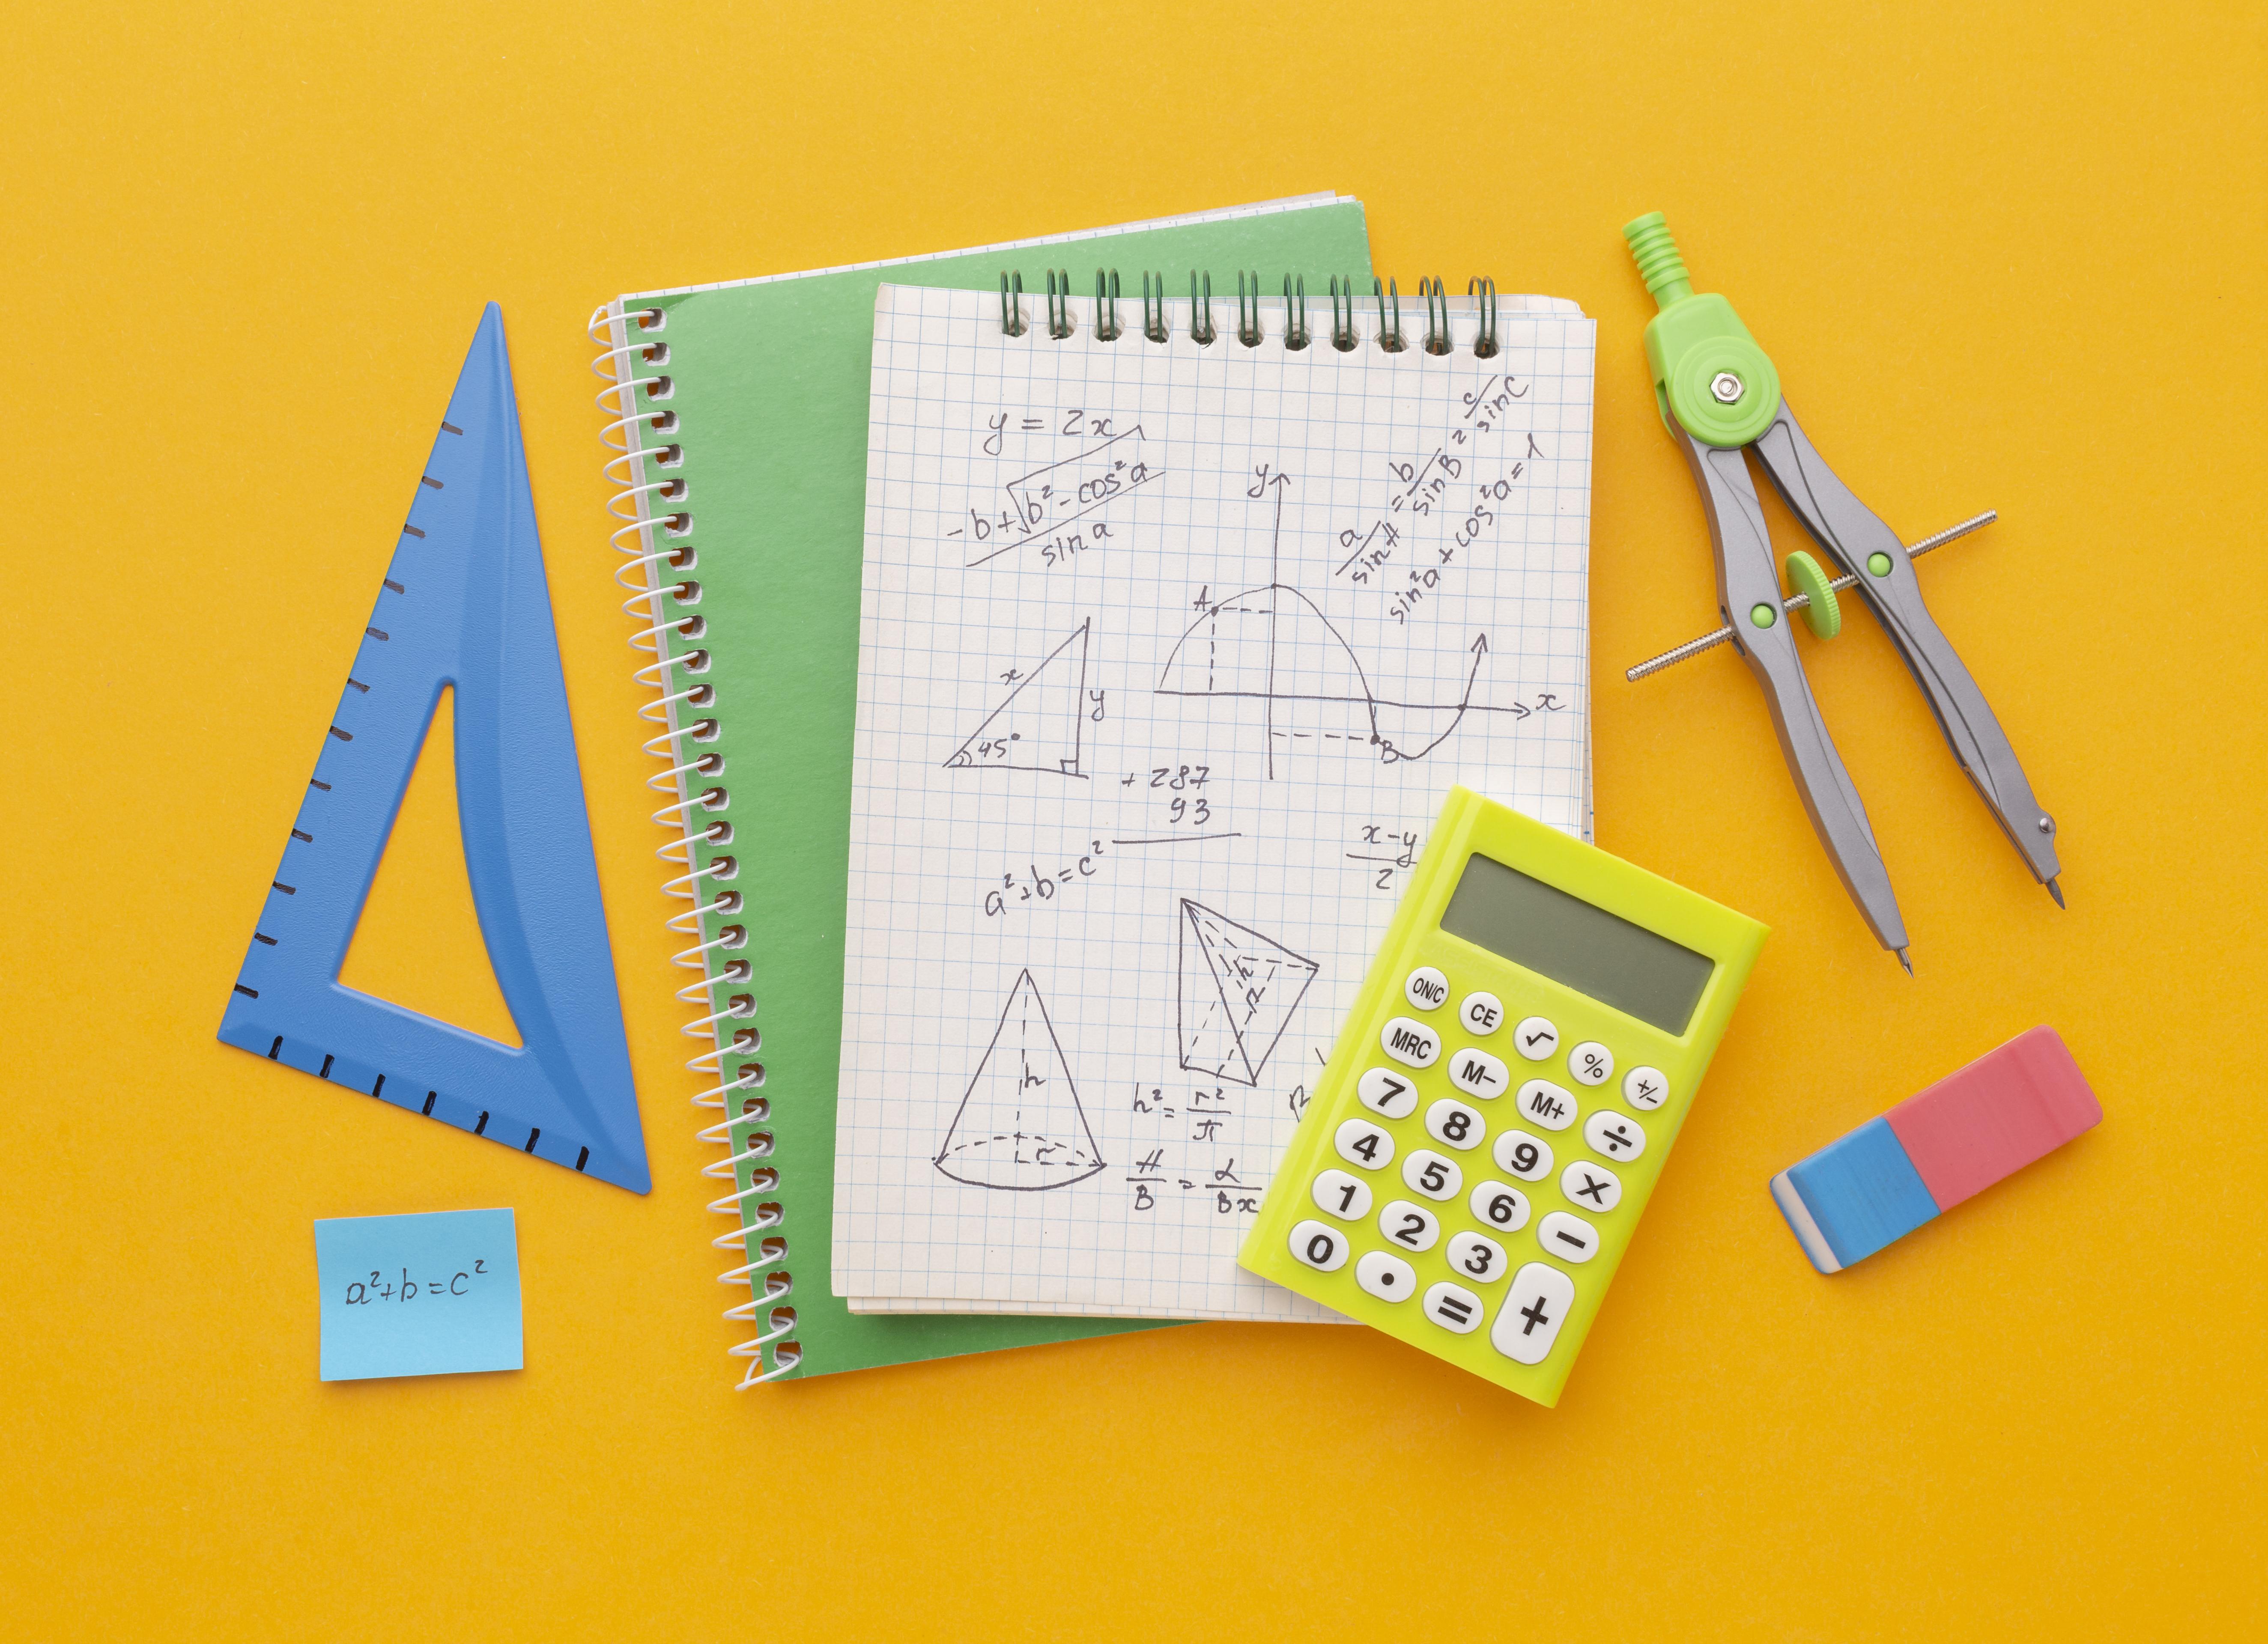 y = 2x
-b+√b²-cos²a
sin a
a/sinA = b/sinB = c/sinC
sin²a + cos²a = 1
y
A
x
y
45°
x
B
+ 287
93
a²+b=c²
x-y
2
h
h
r
h² = r²/π
H/B = L/Bx
ON/C CE √ % +/-
MRC M- M+ ÷
7 8 9 X
4 5 6 -
1 2 3 +
0 . =
a²+b=c²